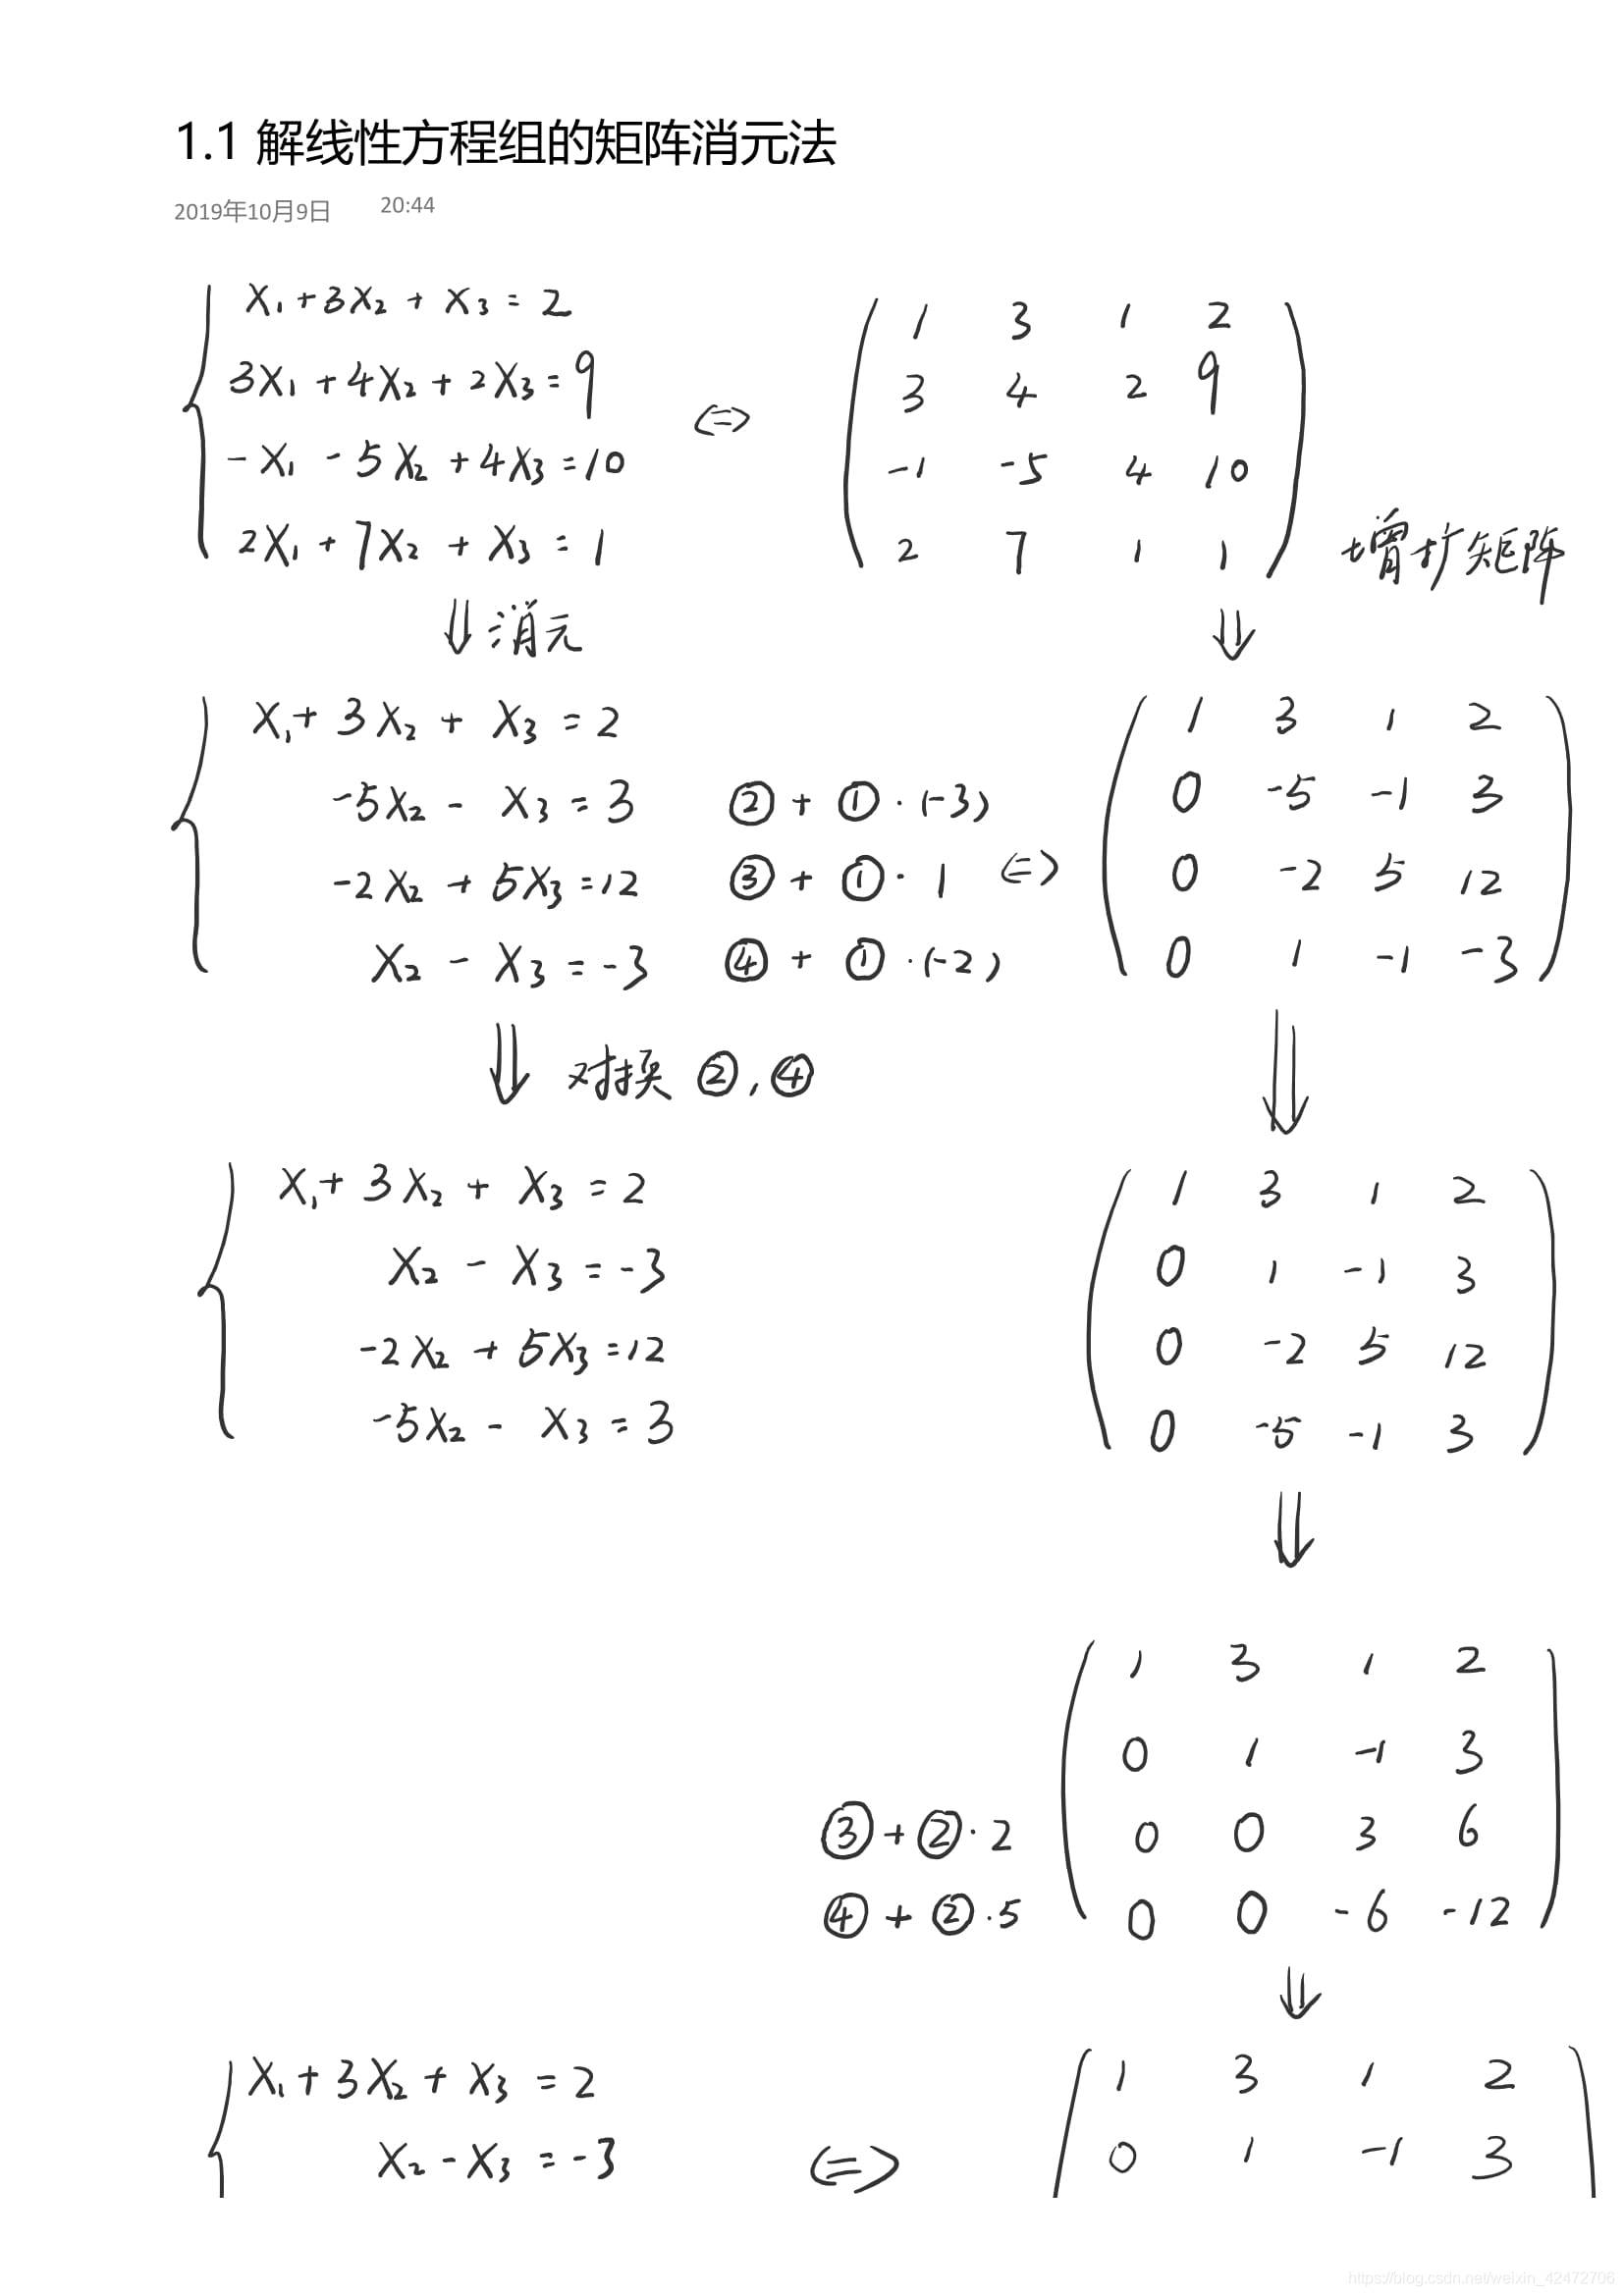 1.1 解线性方程组的矩阵消元法
2019年10月9日 20:44
X₁+3X₂+X₃=2
3X₁+4X₂+2X₃=9
-X₁-5X₂+4X₃=10
2X₁+7X₂+X₃=1
<=>
1 3 1 2
3 4 2 9
-1 -5 4 10
2 7 1 1
增扩矩阵
⇓ 消元
⇓
X₁+3X₂+X₃=2
-5X₂-X₃=3 ②+①·(-3)
-2X₂+5X₃=12 ③+①·1
X₂-X₃=-3 ④+①·(-2)
<=>
1 3 1 2
0 -5 -1 3
0 -2 5 12
0 1 -1 -3
⇓ 对换 ②,④
⇓
X₁+3X₂+X₃=2
X₂-X₃=-3
-2X₂+5X₃=12
-5X₂-X₃=3
1 3 1 2
0 1 -1 3
0 -2 5 12
0 -5 -1 3
⇓
1 3 1 2
0 1 -1 3
③+②·2 0 0 3 6
④+②·5 0 0 -6 -12
⇓
X₁+3X₂+X₃=2
X₂-X₃=-3
<=>
1 3 1 2
0 1 -1 3
https://blog.csdn.net/weixin_42472706